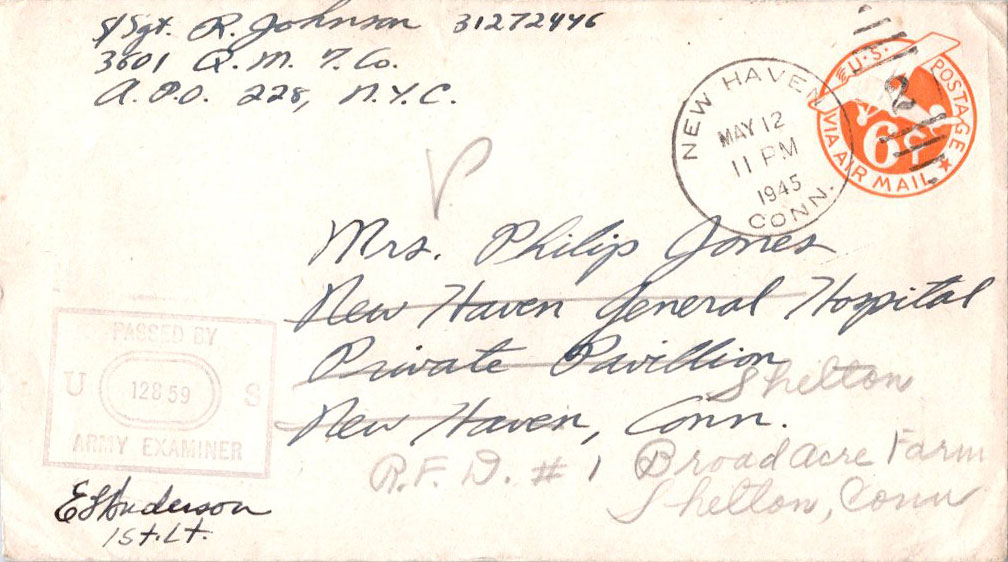 S/Sgt. R. Johnson 31272446
3601 Q. M. T. Co.
A.P.O. 228, N.Y.C.
NEW HAVEN
MAY 12
11 PM
1945
CONN.
U.S. POSTAGE
6¢
VIA AIR MAIL
2
Mrs. Philip Jones
New Haven General Hospital
Private Pavillion
Shelton
New Haven, Conn.
R.F.D. # 1 Broadacre Farm
Shelton, Conn
PASSED BY
U 12859 S
ARMY EXAMINER
1st. Lt.